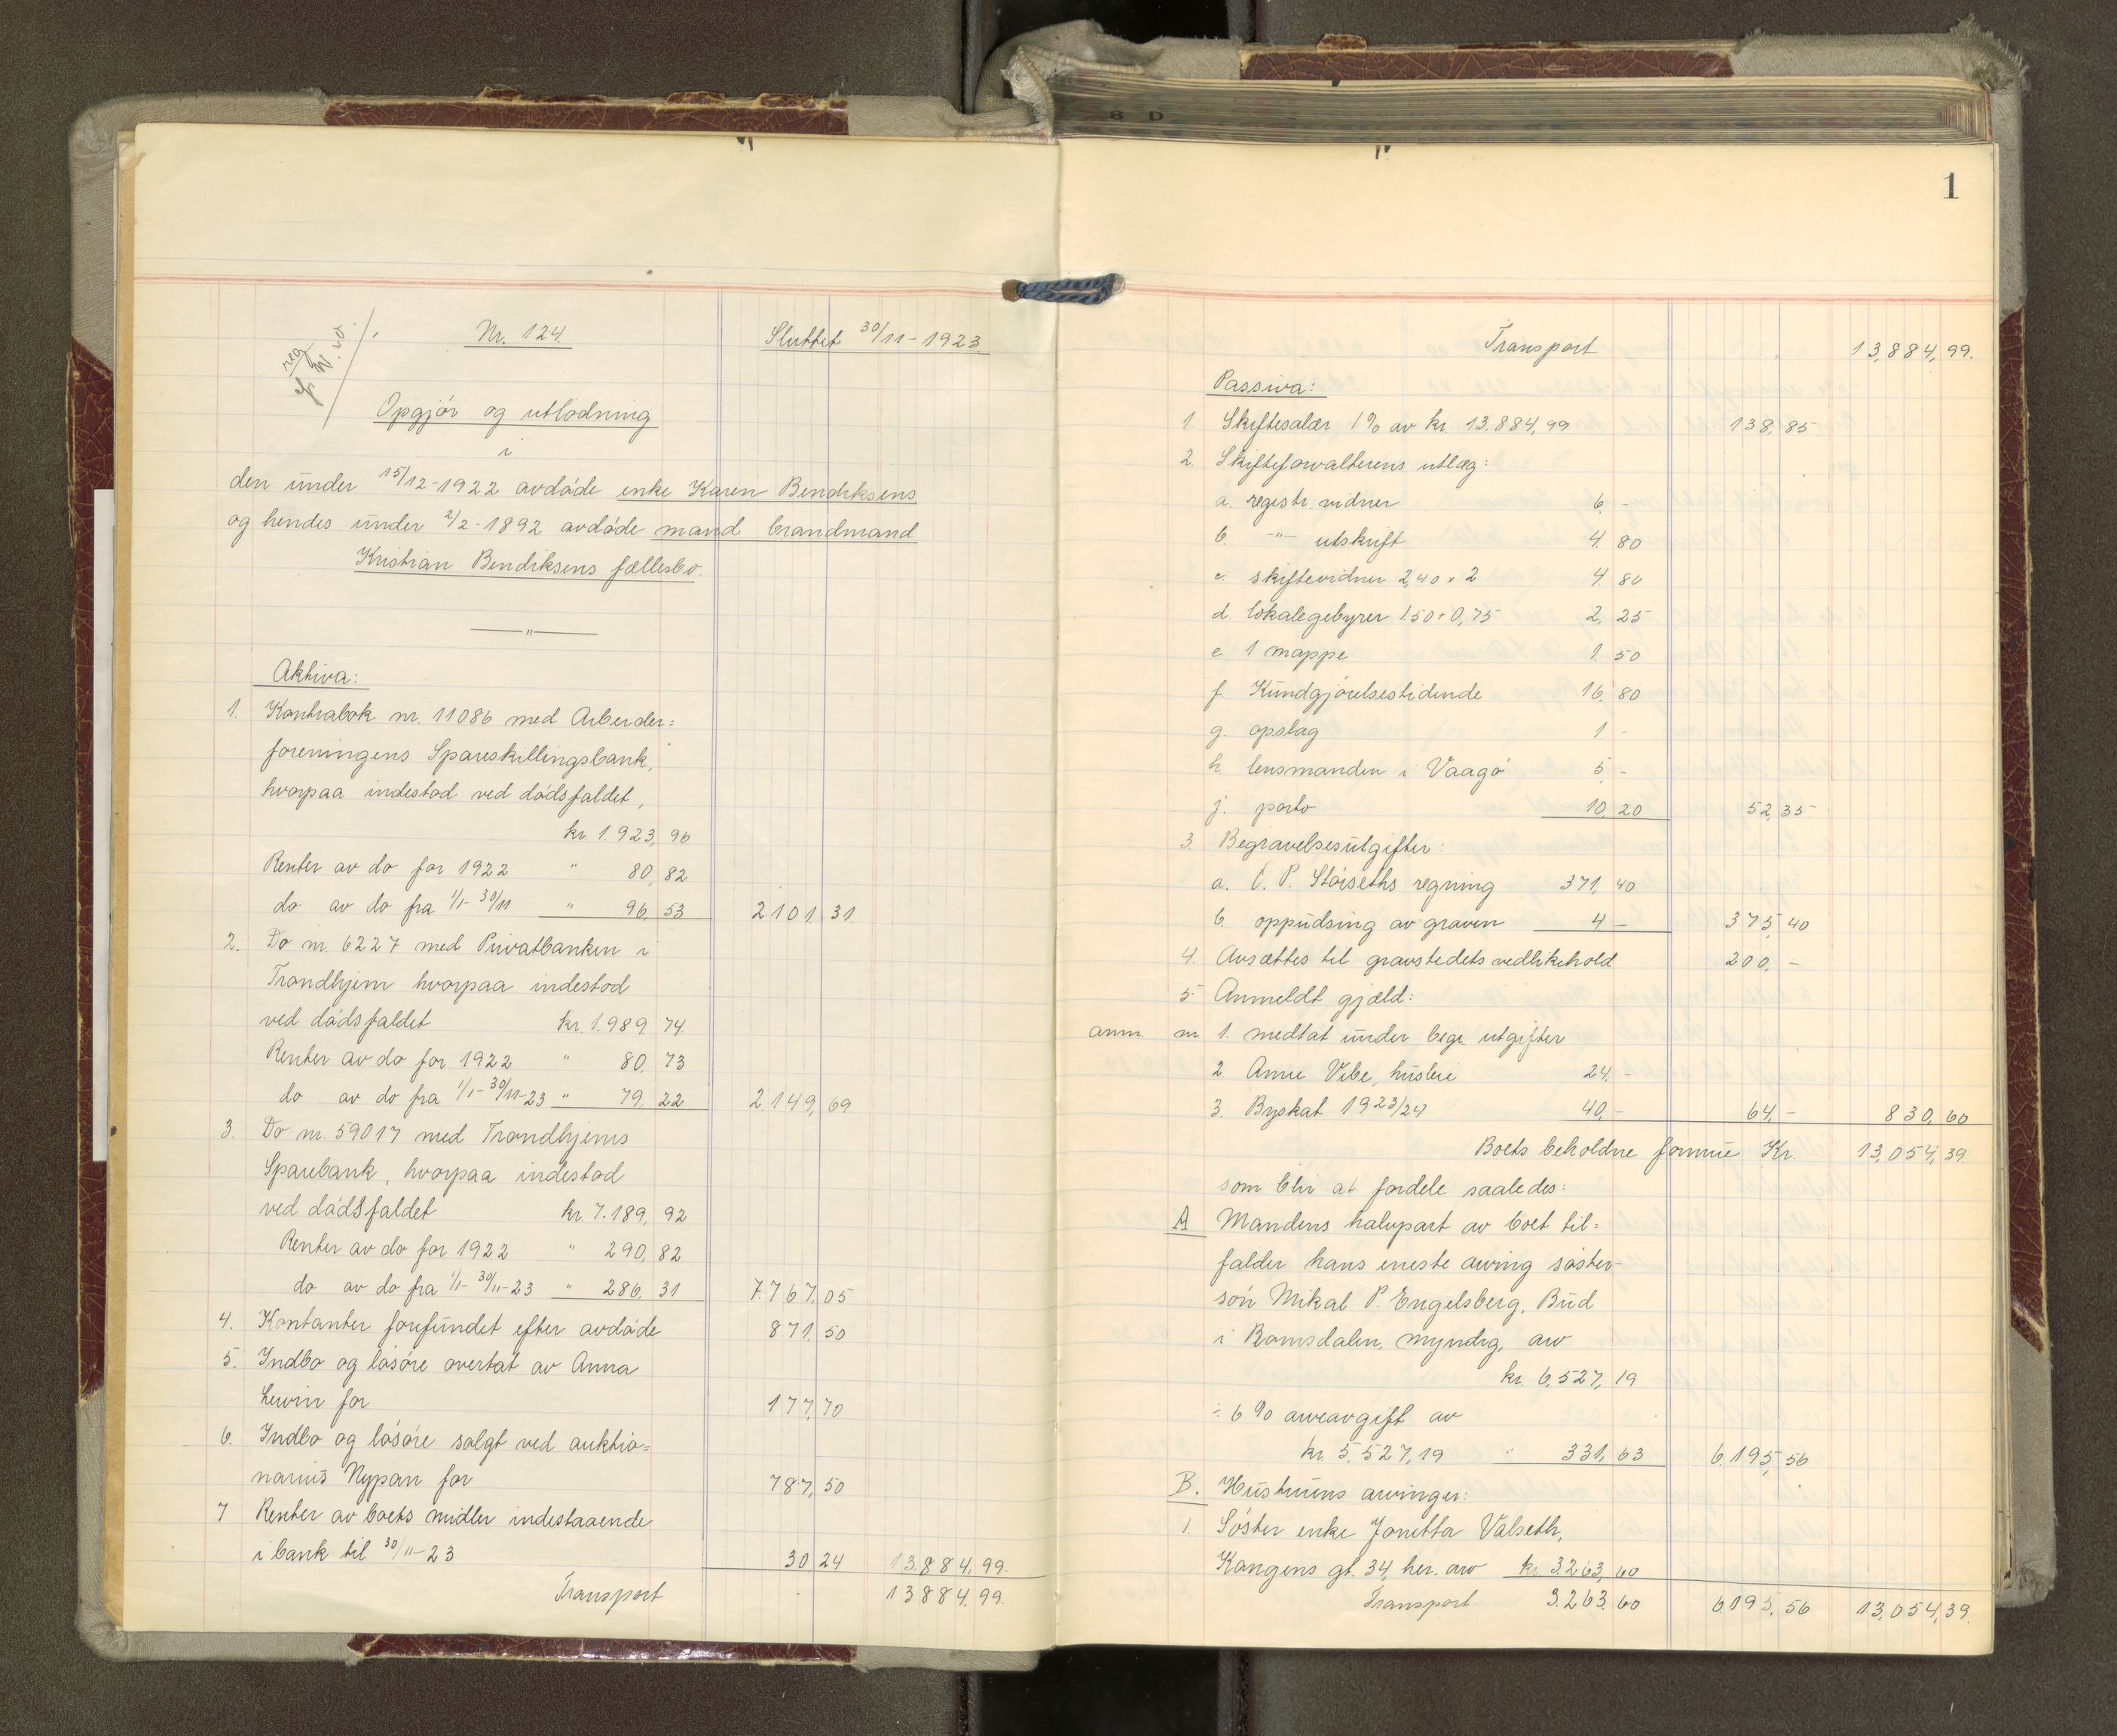 Nr. 124.
Sluttet 30/11-1923
Opgjör og utlodning
i
den under 15/12-1922 avdöde enke Karen Bendiksens
og hendes under 2/2-1892 avdöde mand brandmand
Kristian Bendiksens fællesbo.
—"—
Aktiva:
1. Kontrabok nr. 11086 med Arbeider=
foreningens Spareskillingsbank,
hvorpaa indestod ved dödsfaldet,
kr 1.923,96
Renter av do for 1922 " 80,82
do av do fra 1/1-30/11 " 96,53 2101,31.
2. Do nr. 6227 med Privatbanken i
Trondhjem hvorpaa indestod
ved dödsfaldet kr. 1.989,74.
Renter av do for 1922 " 80,73
do av do fra 1/1-30/11-23 " 79,22 2.149,69
3. Do nr. 59017 med Trondhjems
Sparebank, hvorpaa indestod
ved dödsfaldet kr. 7.189,92
Renter av do for 1922 " 290,82
do av do fra 1/1-30/11-23 " 286,31 7.767,05
4. Kontanter forefundet efter avdöde 871,50
5. Indbo og lösöre overtat av Anna
Lewin for 177,70
6. Indbo og lösöre solgt ved auktio=
narius Nypan for 787,50
7 Renter av boets midler indestaaende
i bank til 30/11-23 30,24 13.884,99.
Transport 13884,99.
1
Transport 13,884,99.
Passiva:
1. Skiftesalær 1% av kr. 13.884,99 138,85
2. Skifteforvalterens utlæg:
a. registr. vidner 6,-
b. -"- utskrift 4,80
c. skiftevidner 2,40 x 2 4,80
d. lokalegebyrer 1.50+0,75 2,25
e. 1 mappe 1.50
f. Kundgjörelsestidende 16,80
g. opslag 1 -
h. lensmanden i Vaagö 5,-
j. porto 10,20 52,35
3. Begravelsesutgifter:
a. O. P. Stöiseths regning 371,40
b. oppudsing av graven 4 - 375,40
4. Avsættes til gravstedets vedlikehold 200,-
5 Anmeldt gjæld:
anm. nr 1. medtat under begr. utgifter
2 Anne Vibe, husleie 24,-
3. Byskat 1923/24 40,- 64,- 830,60
Boets beholdne formue Kr. 13,054,39.
som blir at fordele saaledes:
A Mandens halvpart av boet til=
falder hans eneste arving söster-
sön Mikal P. Engelsberg, Bud
i Romsdalen, myndig, arv
kr. 6.527,19
÷ 6% arveavgift av
kr 5.527,19 " 331,63 6.195,56
B. Hustruens arvinger:
1. Söster enke Jonetta Valseth,
Kongens gt. 34, her. arv kr. 3.263,60
Transport 3.263,60 6.195,56 13,054,39.